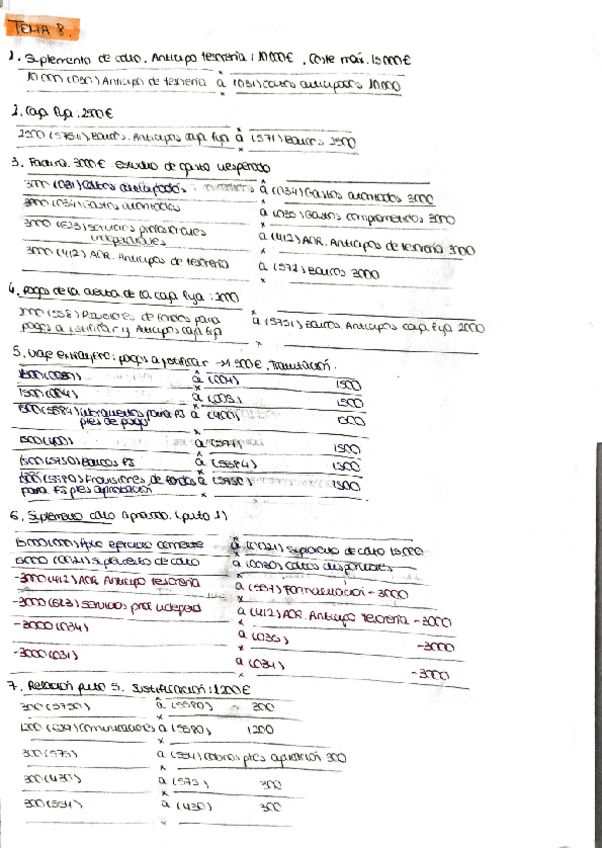 TEMA 8.
1. Suplemento de cdto. Anticipo tesorería: 10.000€. Coste max. 15.000€
10.000 Anticipo de tesorería a (031) Cdtos anticipados 10.000
2. Caja fija: 2500€
2500 (5751) Bancos. Anticipos caja fija a (571) Bancos 2500
3. Factura. 3000€ estudio de gasto inesperado
3000 (031) a (034) Gastos 3000
3000 (034) Gastos a Gastos comprometidos 3000
3000 (623) Servicios profesionales
independientes a (412) ACR. Anticipos de tesorería 3000
3000 (412) ACR. Anticipos de tesorería a (571) Bancos 3000
4. Pagos de la cuenta de la caja fija: 2000
2000 (558) Provisiones de fondos para
pagos a justificar y Anticipos caja fija a (5751) Bancos Anticipos caja fija 2000
5. Viaje extranjero: pagos a justificar → 1500€. Tramitación.
a (004) 1500
1500 (004) a 1500
1500 (5584) Libramientos para PJ
ptes de pago a (400) 1500
1500 (400) a (571) 1500
1500 (5750) Bancos PJ a (5584) 1500
1500 (5580) Provisiones de fondos
para PJ ptes aprobación a (5750) 1500
6. Suplemento cdto aprobado. (pto 1)
15000 Ppto ejercicio corriente a (0021) Suplemento de cdto 15.000
15000 (0021) Suplemento de cdto a (0030) Cdtos disponibles
-3000 (412) ACR. Anticipo tesorería a (557) Formalización -3000
-3000 (623) Servicios prof independ a (412) ACR. Anticipo tesorería -3000
-3000 (034) a -3000
-3000 (031) a (034) -3000
7. Relación pto 5. Justificación: 1200€
300 (5750) a (5580) 300
1200 (629) Comunicaciones a (5580) 1200
300 (575) a (554) Cobros ptes aplicación 300
300 (430) a 300
300 (554) a (430) 300